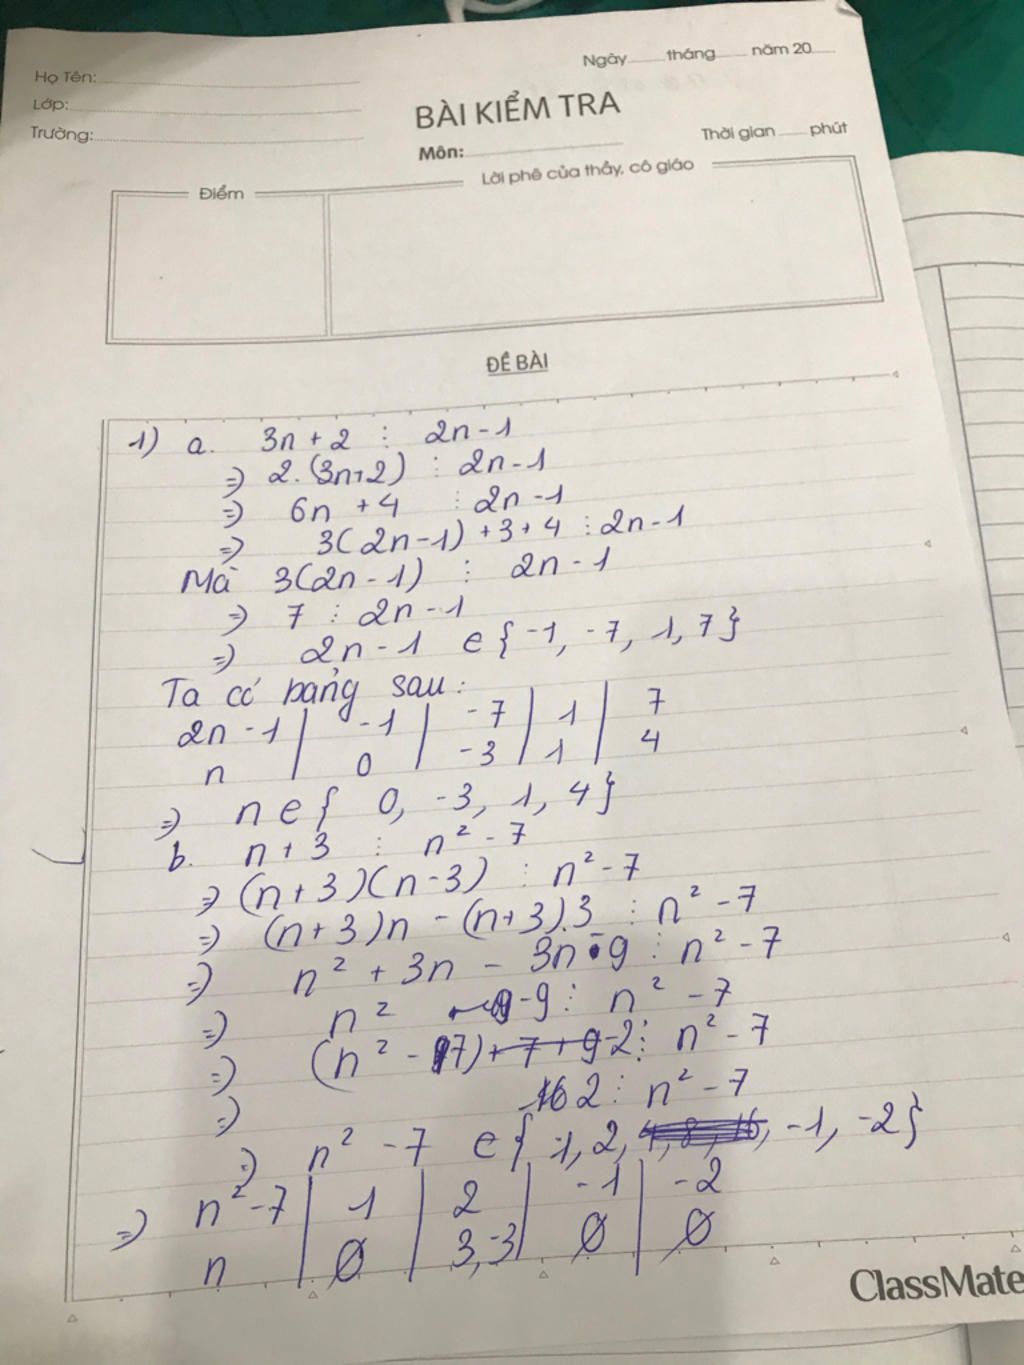 Họ Tên:
Ngày tháng năm 20
Lớp:
BÀI KIỂM TRA
Trường:
Môn:
Thời gian phút
Điểm
Lời phê của thầy, cô giáo
ĐỀ BÀI
1) a. 3n + 2 ⋮ 2n - 1
=> 2.(3n+2) ⋮ 2n - 1
=> 6n + 4 ⋮ 2n - 1
=> 3(2n-1) + 3 + 4 ⋮ 2n - 1
Mà 3(2n - 1) ⋮ 2n - 1
=> 7 ⋮ 2n - 1
=> 2n - 1 ∈ { -1, -7, 1, 7}
Ta có bảng sau:
2n - 1 | -1 | -7 | 1 | 7
n | 0 | -3 | 1 | 4
=> n ∈ { 0, -3, 1, 4}
b. n + 3 ⋮ n² - 7
=> (n+3)(n-3) ⋮ n² - 7
=> (n+3)n - (n+3).3 ⋮ n² - 7
=> n² + 3n - 3n - 9 ⋮ n² - 7
=> n² - 9 ⋮ n² - 7
=> (n² - 7) - 2 ⋮ n² - 7
=> 2 ⋮ n² - 7
=> n² - 7 ∈ { 1, 2, -1, -2}
=> n² - 7 | 1 | 2 | -1 | -2
n | ∅ | 3, -3 | ∅ | ∅
ClassMate